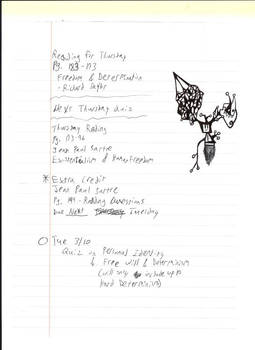 Reading for Thursday
Pg. 153-173
Freedom & Determination
- Richard Taylor
Next Thursday Quiz
Thursday Reading
Pg.
Jean Paul Sartre
Existentialism & Human Freedom
* Extra Credit
Jean Paul Sartre
Pg. 199 - Reading Questions
Due Next Tuesday
Tue 3/10
Quiz on Personal Identity
& Free Will & Determinism
(will only include up to
Hard Determinism)